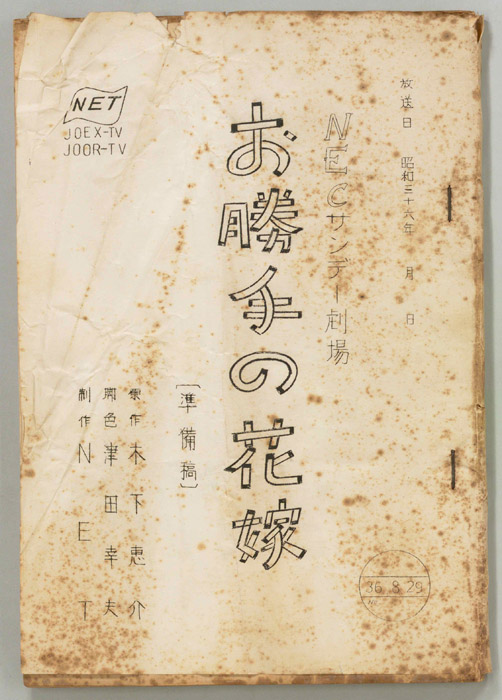 放送日 昭和三十六年 月 日
NECサンデー劇場
お勝手の花嫁
[準備稿]
原作 木下恵介
脚色 津田幸夫
制作 NET
NET
JOEX-TV
JOOR-TV
36.8.29